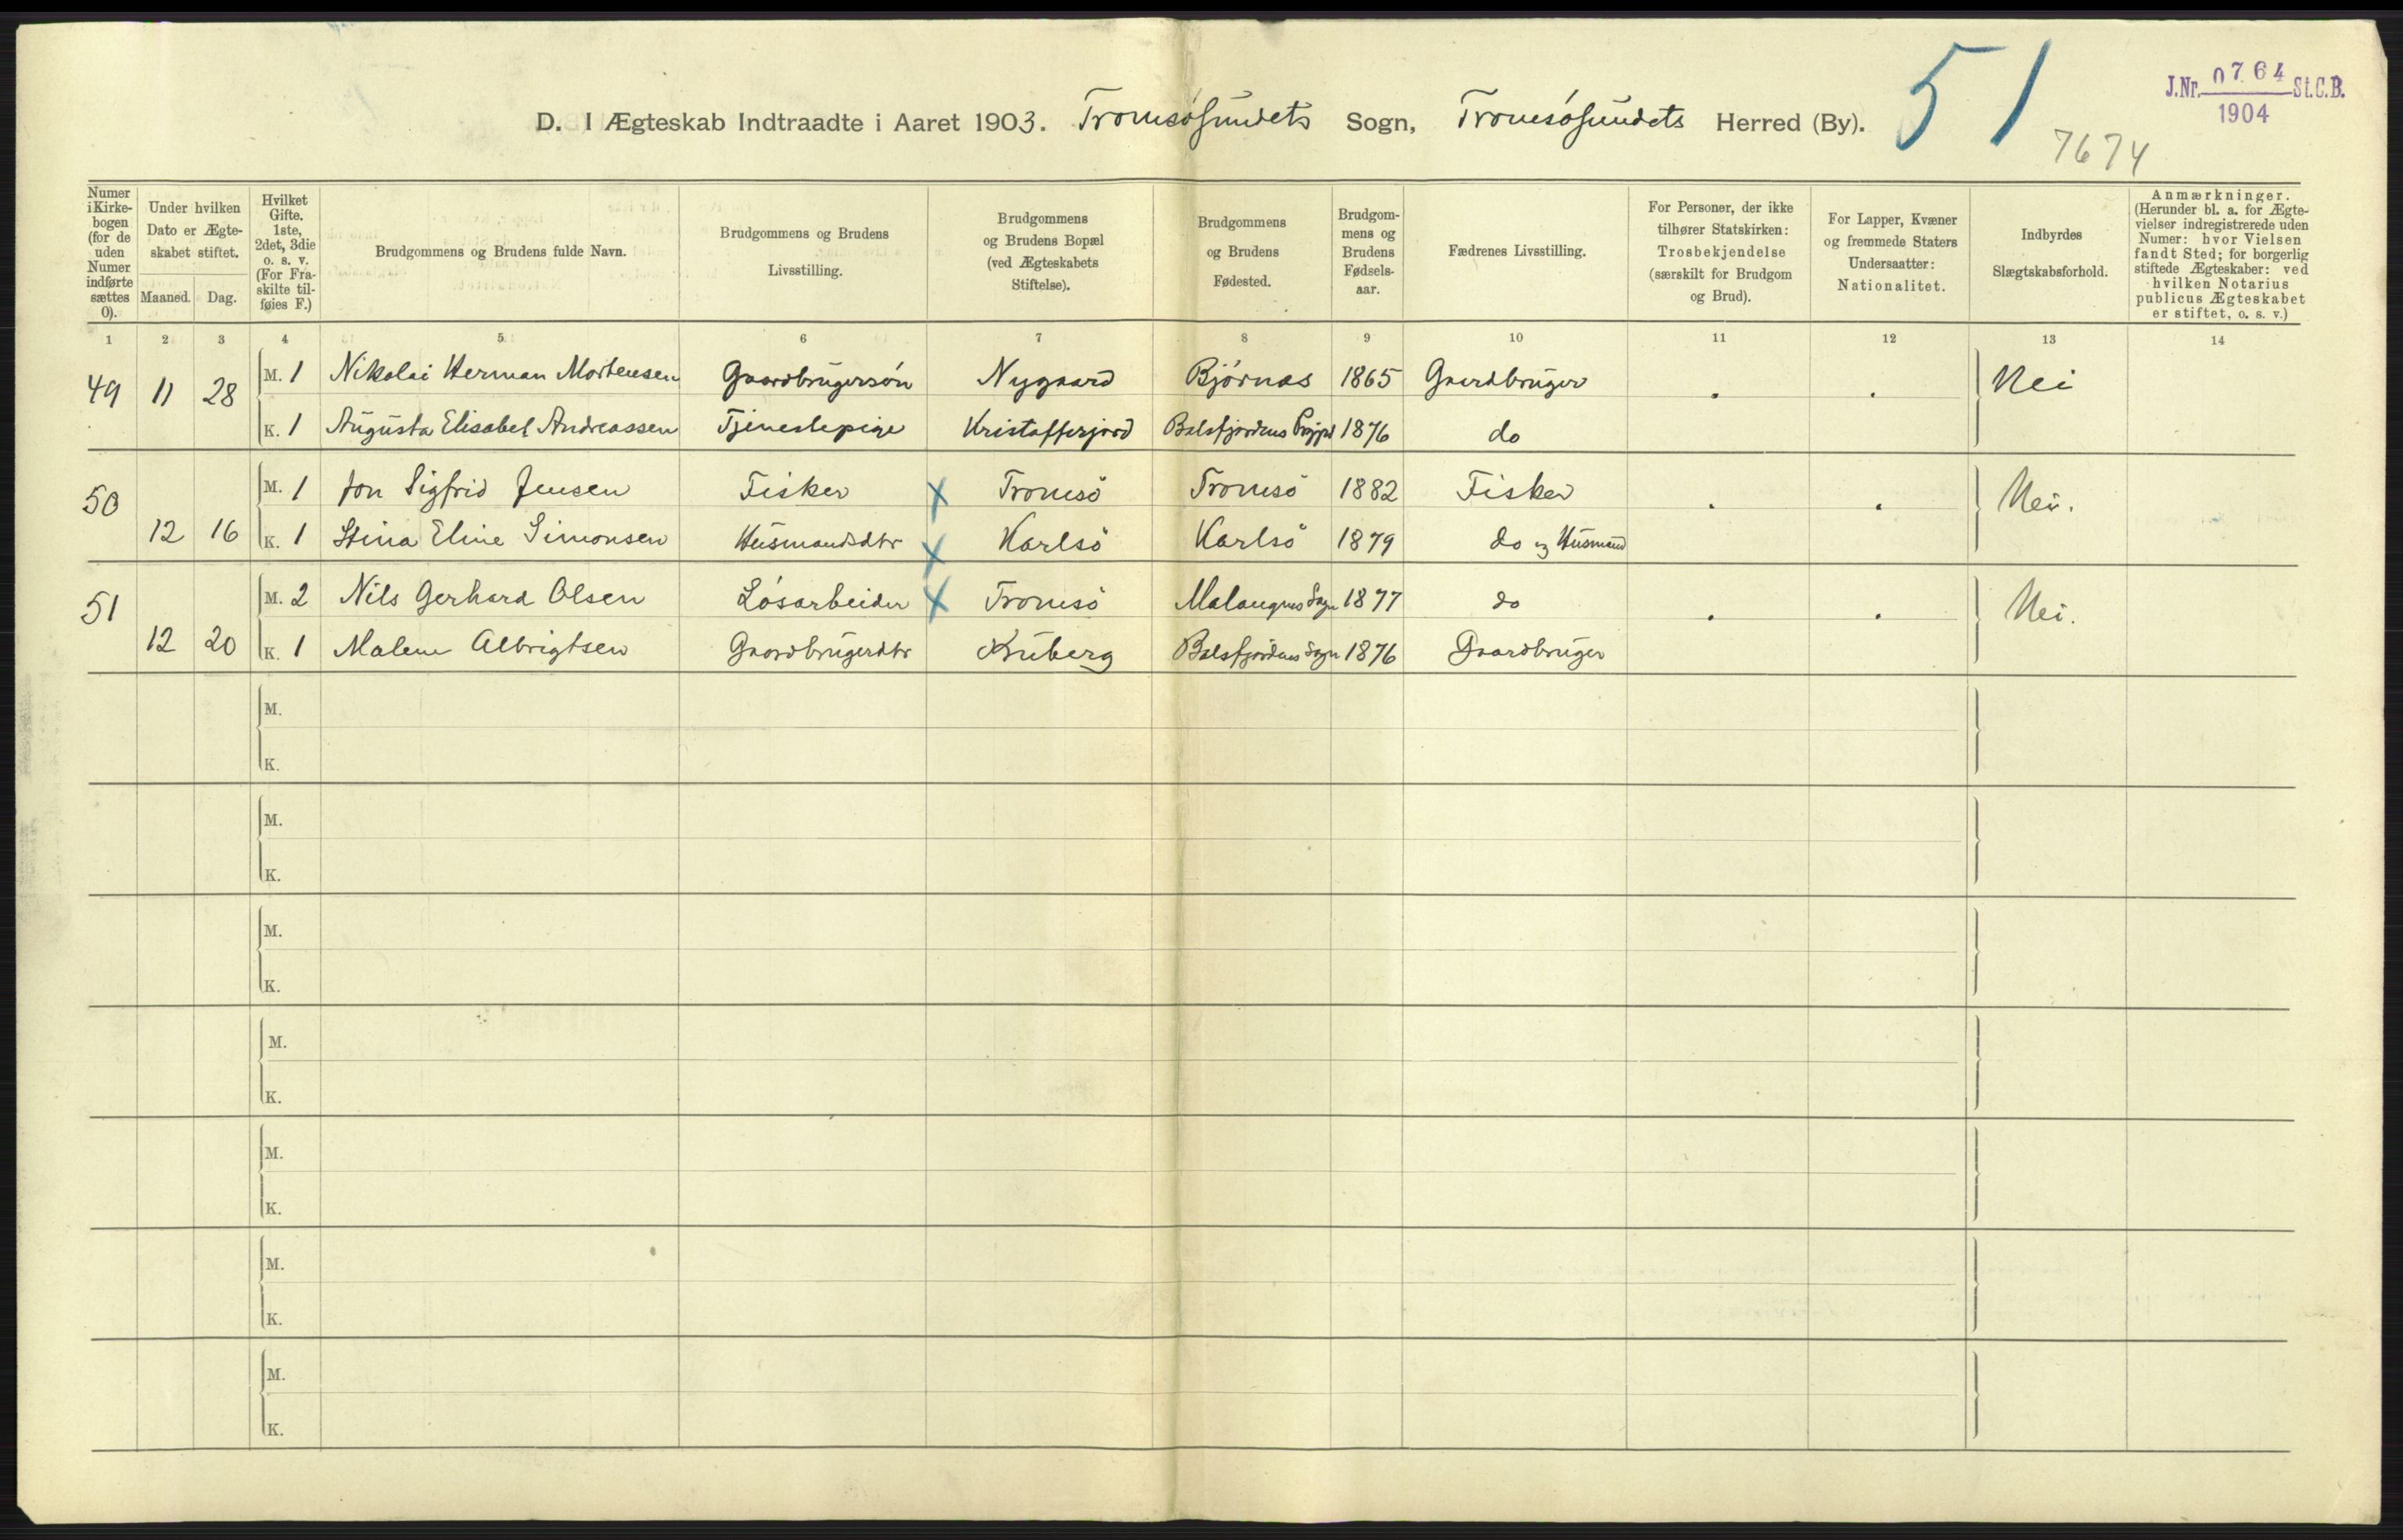 D. I Ægteskab Indtraadte i Aaret 1903. Tromsøsundets Sogn, Tromsøsundets Herred (By).
51
J.Nr. 0764 St.C.B.
1904
7674
Numer i Kirkebogen (for de uden Numer indførte sættes 0).
Under hvilken Dato er Ægteskabet stiftet.
Maaned. Dag.
Hvilket Gifte. 1ste, 2det, 3die o. s. v. (For Fraskilte tilføies F.)
Brudgommens og Brudens fulde Navn.
Brudgommens og Brudens Livsstilling.
Brudgommens og Brudens Bopæl (ved Ægteskabets Stiftelse).
Brudgommens og Brudens Fødested.
Brudgommens og Brudens Fødselsaar.
Fædrenes Livsstilling.
For Personer, der ikke tilhører Statskirken: Trosbekjendelse (særskilt for Brudgom og Brud).
For Lapper, Kvæner og fremmede Staters Undersaatter: Nationalitet.
Indbyrdes Slægtskabsforhold.
Anmærkninger. (Herunder bl. a. for Ægtevielser indregistrerede uden Numer: hvor Vielsen fandt Sted; for borgerlig stiftede Ægteskaber: ved hvilken Notarius publicus Ægteskabet er stiftet, o. s. v.)
1 2 3 4 5 6 7 8 9 10 11 12 13 14
49 11 28 M. 1 Nikolai Herman Mortensen Gaardbrugersøn Nygaard Bjørnas 1865 Gaardbruger . . Nei
K. 1 Augusta Elisabet Andreassen Tjenestepige Kristofferjord Balsfjordens 1876 do
50 M. 1 Jon Sigfrid Jensen Fisker X Tromsö Tromsö 1882 Fisker . . Nei.
12 16 K. 1 Stina Eline Simonsen Husmandsdtr X Karlsö Karlsö 1879 do og Husmand
51 M. 2 Nils Gerhard Olsen Løsarbeider X Tromsö Malangens Sogn 1877 do . . Nei.
12 20 K. 1 Malene Albrigtsen Gaardbrugerdtr Kuberg Balsfjordens Sogn 1876 Gaardbruger
M.
K.
M.
K.
M.
K.
M.
K.
M.
K.
M.
K.
M.
K.